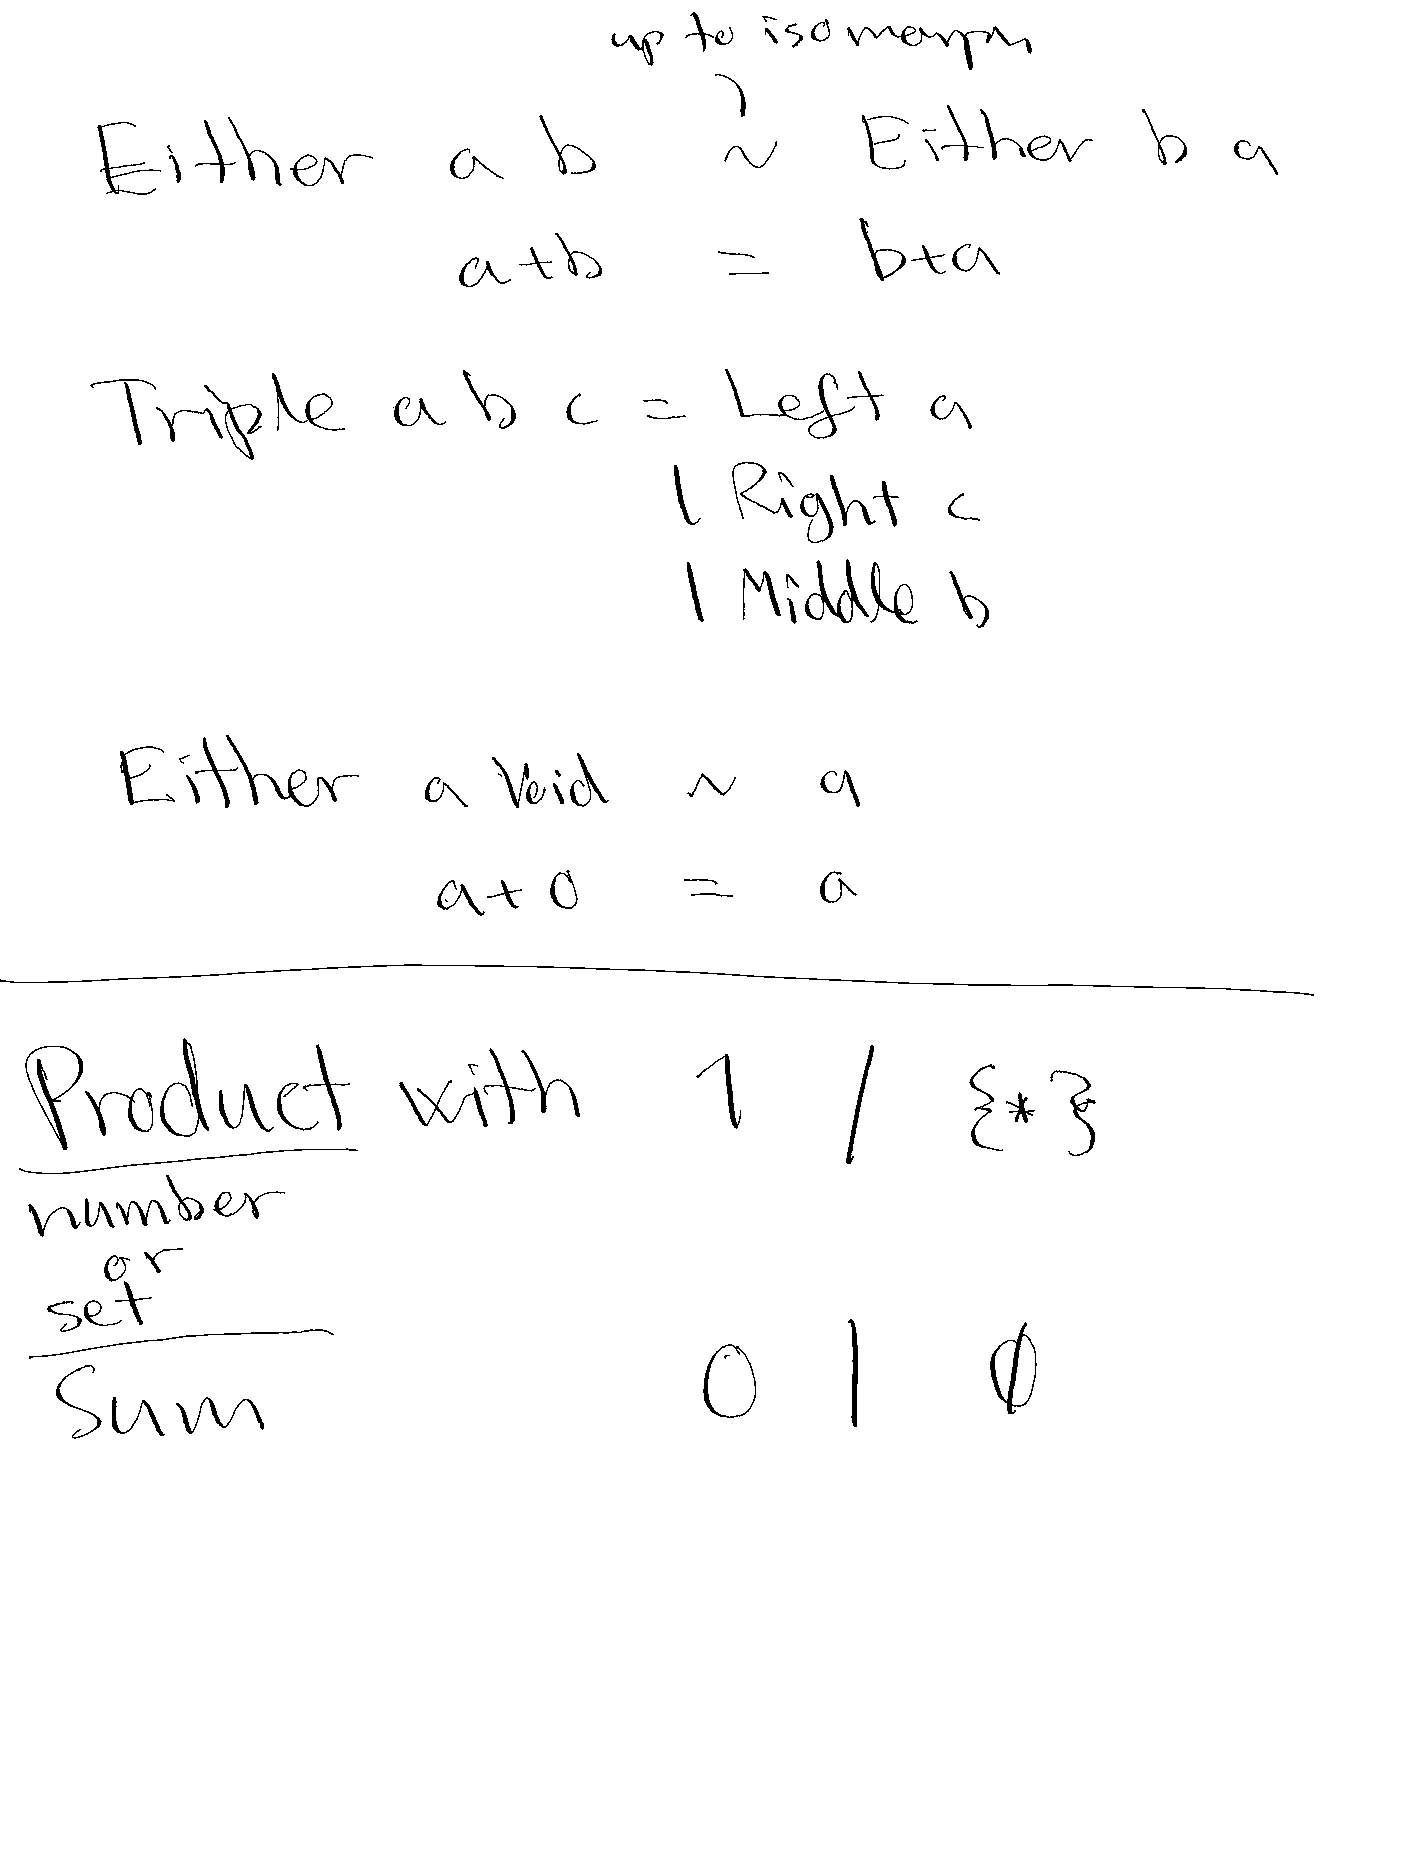 up to isomorph
Either a b ~ Either b a
a+b = b+a
Triple a b c = Left a
| Right c
| Middle b
Either a Void ~ a
a+0 = a
Product with 1 / {*}
number
or
set
Sum 0 | ∅